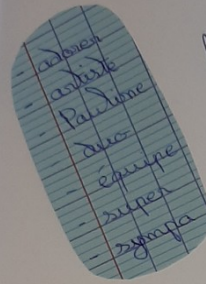 - adorer
- artiste
- Pauline
- duo
- équipe
- super
- sympa